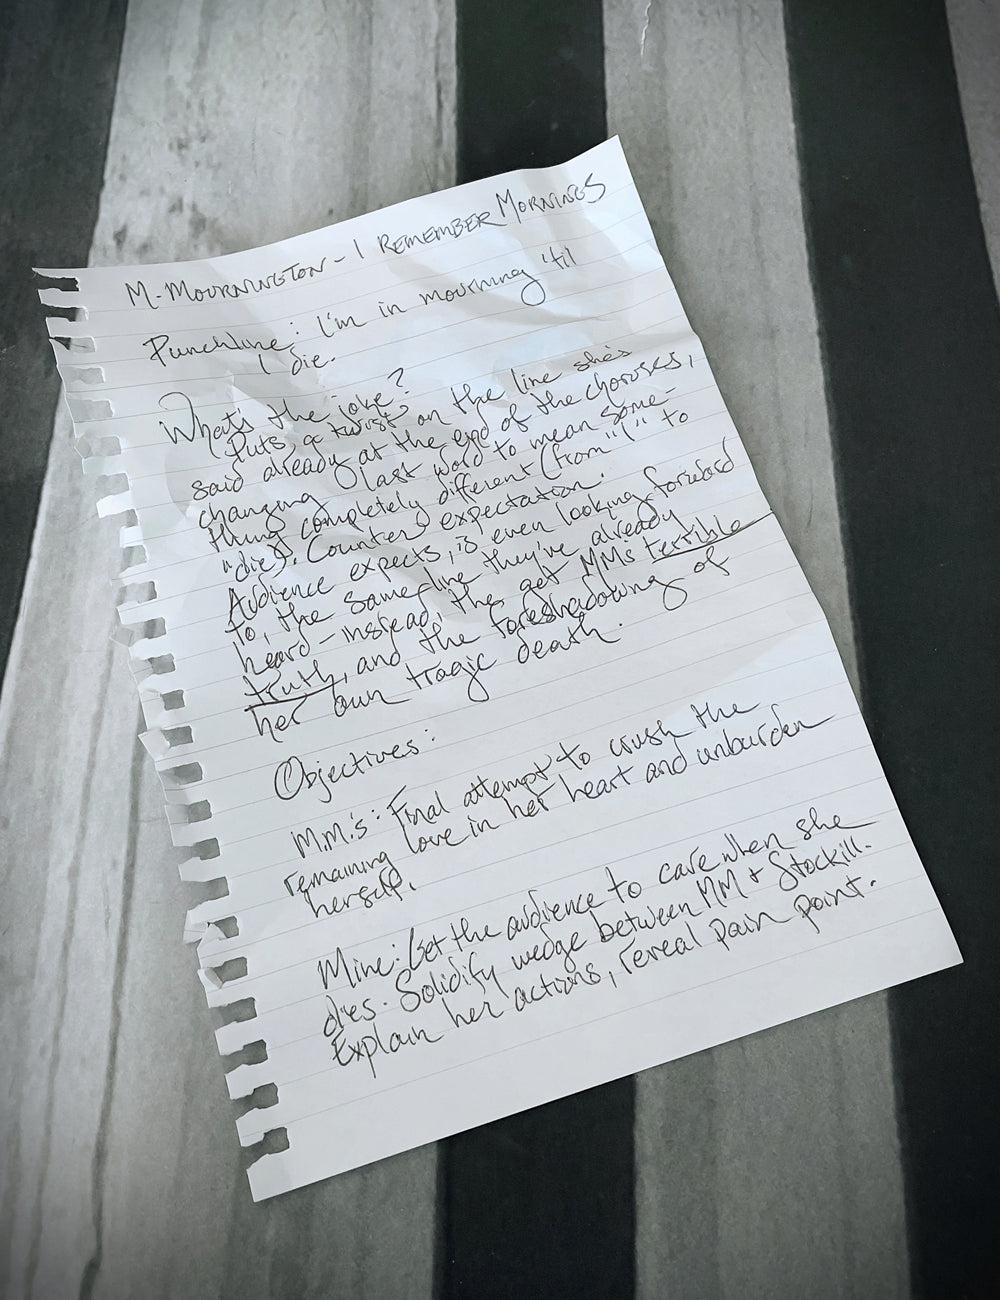 M. MOURNINGTON - I REMEMBER MORNINGS
Punchline: I'm in mourning 'til
I die.
What's the joke?
Puts a twist on the line she's
said already at the end of the choruses,
changing last word to mean some-
thing completely different (from "I" to
"die). Counter expectation.
Audience expects, is even looking forward
to, the same line they've already
heard - instead, the get MMs terrible
truth, and the foreshadowing of
her own tragic death.
Objectives:
M.M.'s: Final attempt to crush the
remaining love in her heart and unburden
herself.
Mine: Get the audience to care when she
dies. Solidify wedge between MM + Stockill.
Explain her actions, reveal pain point.